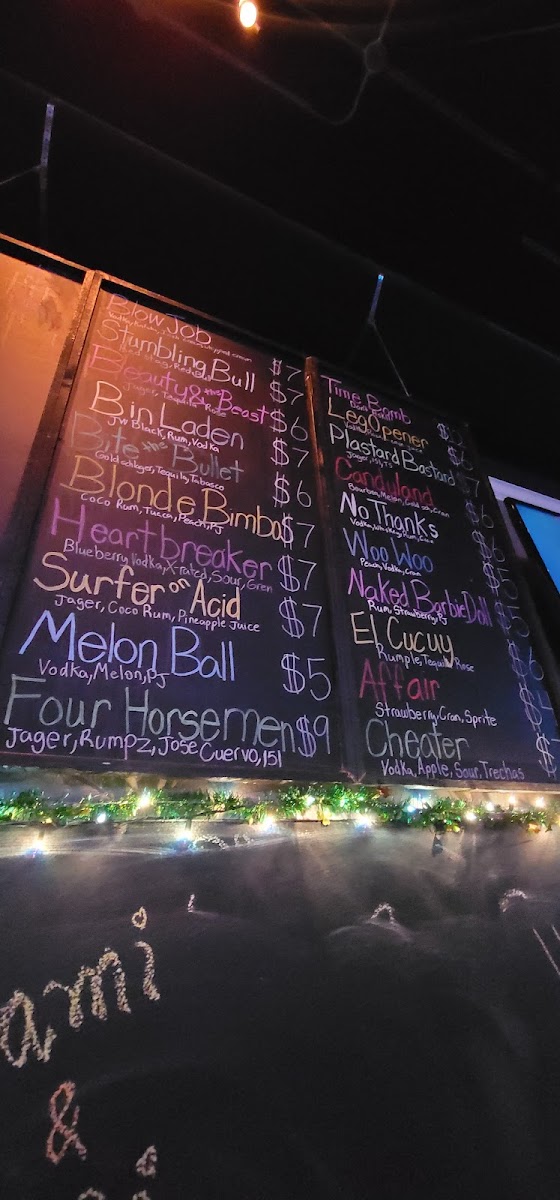 Blow Job
$7
Stumbling Bull
$7
Beauty & the Beast
Jager, Tequila Rose
$6
Bin Laden
JW Black, Rum, Vodka
$7
Bite the Bullet
Goldschlager, Tequila, Tabasco
$6
Blonde Bimbo $7
Coco Rum, Tucca, Peach, PJ
Heartbreaker $7
Blueberry Vodka, X-rated, Sour, Gren
Surfer on Acid $7
Jager, Coco Rum, Pineapple Juice
Melon Ball $5
Vodka, Melon, PJ
Four Horsemen $9
Jager, Rumpz, Jose Cuervo, 151
Time Bomb
Leg Opener
Plastard Bastard
Jager, 151, TS
Candyland
$6
No Thanks
$6
Woo Woo
Peach, Vodka, Cran
$5
Naked Barbie Doll $5
Rum, Strawberry, PJ
El Cucuy $6
Rumple, Tequila Rose
Affair
Strawberry, Cran, Sprite
Cheater
Vodka, Apple, Sour, Trechas
ami
&